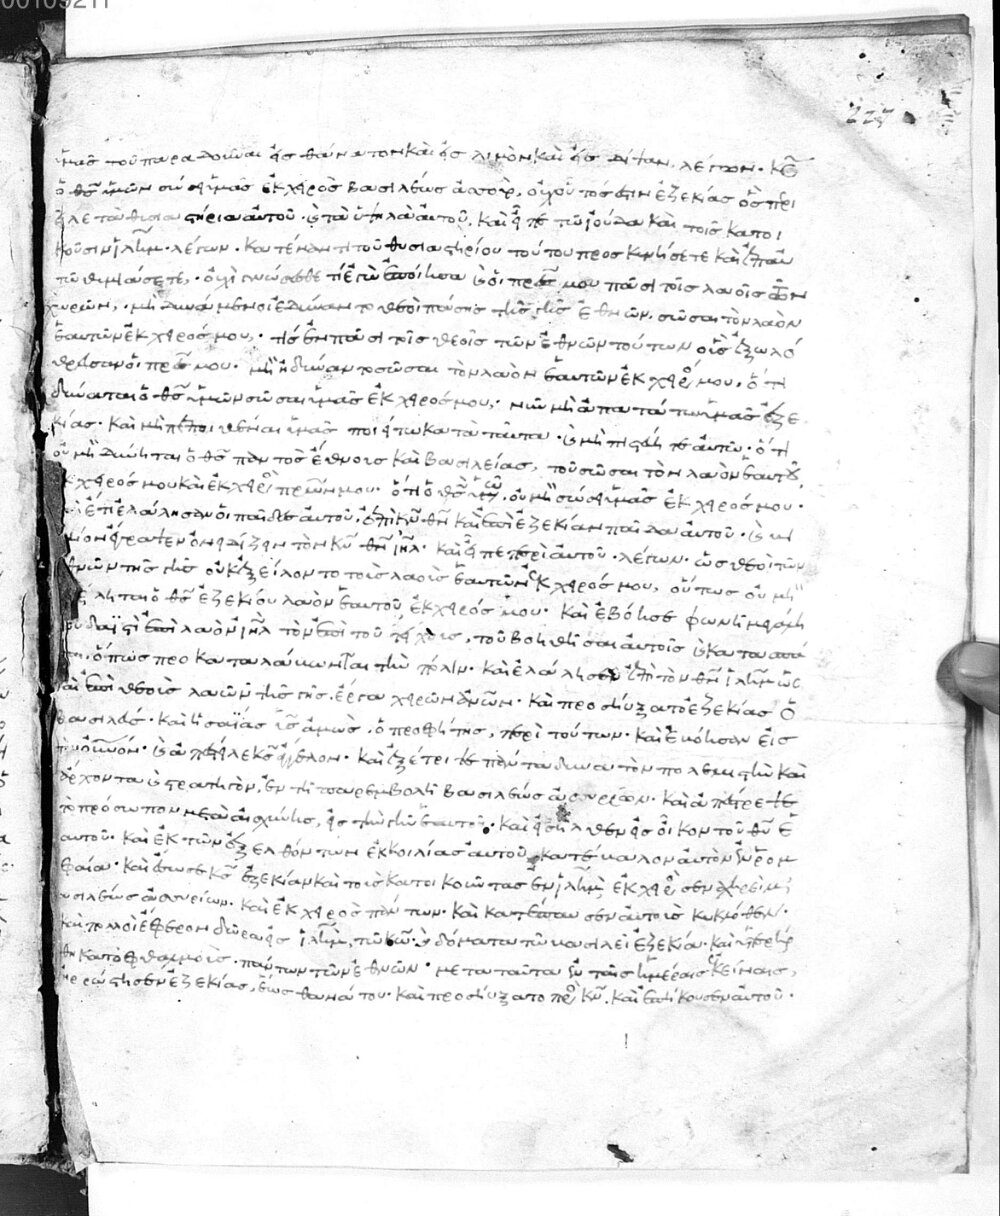 00109211
227
ὑμᾶς τοῦ παραδοῦναι εἰς θάνατον καὶ εἰς λιμὸν καὶ εἰς δίψαν. λέγων. κς
ὁ θς ἡμῶν σώσει ἡμᾶς ἐκ χειρὸς βασιλέως ἀσσούρ, οὐχ οὗτός ἐστιν ἐζεκίας ὃς περι
εῖλε τὰ θυσιαστήρια αὐτοῦ. καὶ τὰ ὑψηλὰ αὐτοῦ. καὶ εἶπε τῷ ἰούδα καὶ τοῖς κατοι
κοῦσιν ἰλημ. λέγων. κατέναντι τοῦ θυσιαστηρίου τούτου προσκυνήσετε καὶ ἐπ' αὐ
τῷ θυμιάσετε. οὐχὶ γνώσεσθε τί ἐγὼ ἐποίησα καὶ οἱ πρες μου πᾶσι τοῖς λαοῖς τῶν
χωρῶν. μὴ δυνάμενοι ἐδύναντο θεοὶ πάσης τῆς γῆς ἐθνῶν, σῶσαι τὸν λαὸν
ἑαυτῶν ἐκ χειρός μου. τίς ἐν πᾶσι τοῖς θεοῖς τῶν ἐθνῶν τούτων οὓς ἐξωλό
θρευσαν οἱ πρες μου. μὴ ἠδύναντο σῶσαι τὸν λαὸν ἑαυτῶν ἐκ χειρός μου. ὅτι
δύναται ὁ θς ὑμῶν σῶσαι ὑμᾶς ἐκ χειρός μου. νῦν μὴ ἀπατάτω ὑμᾶς ἐζε
κίας. καὶ μὴ πεποιθέναι ὑμᾶς ποιείτω κατὰ ταῦτα. καὶ μὴ πιστεύετε αὐτῷ. ὅτι
οὐ μὴ δύνηται ὁ θς παντὸς ἔθνους καὶ βασιλείας, τοῦ σῶσαι τὸν λαὸν ἑαυτοῦ,
ἐκ χειρός μου καὶ ἐκ χειρὸς πρων μου. ὅτι ὁ θς ὑμῶν. οὐ μὴ σώσει ὑμᾶς ἐκ χειρός μου.
καὶ ἔτι ἐλάλησαν οἱ παῖδες αὐτοῦ. ἐπὶ κν θν καὶ ἐπὶ ἐζεκίαν παῖδα αὐτοῦ. καὶ βι
βλίον ἔγραψεν ὀνειδίζειν τὸν κν θν ιηλ. καὶ εἶπε περὶ αὐτοῦ. λέγων. ὡς θεοὶ τῶν
ἐθνῶν τῆς γῆς οὐκ ἐξείλοντο τοὺς λαοὺς ἑαυτῶν ἐκ χειρός μου, οὕτως οὐ μὴ
ἐξέληται ὁ θς ἐζεκίου λαὸν ἑαυτοῦ ἐκ χειρός μου. καὶ ἐβόησε φωνῇ μεγάλῃ
ἰουδαϊστὶ ἐπὶ λαὸν ιηλ τὸν ἐπὶ τοῦ τείχους, τοῦ βοηθῆσαι αὐτοῖς καὶ κατασπά
σαι. ὅπως προκαταλάβωνται τὴν πόλιν. καὶ ἐλάλησεν ἐπὶ τὸν θν ἰλημ ὡς
καὶ ἐπὶ θεοὺς λαῶν τῆς γῆς. ἔργα χειρῶν ἀνων. καὶ προσηύξατο ἐζεκίας ὁ
βασιλεύς. καὶ ἡσαΐας υἱὸς ἀμώς. ὁ προφήτης, περὶ τούτων. καὶ ἐβόησαν εἰς
τὸν οὐνόν. καὶ ἀπέστειλε κς ἄγγελον. καὶ ἐξέτριψε πάντα δυνατὸν πολεμιστὴν καὶ
ἄρχοντα καὶ στρατηγόν, ἐν τῇ παρεμβολῇ βασιλέως ἀσσυρίων. καὶ ἀπέστρεψε
τὸ πρόσωπον μετὰ αἰσχύνης, εἰς τὴν γῆν ἑαυτοῦ. καὶ εἰσῆλθεν εἰς οἶκον τοῦ θυ ἑ
αυτοῦ. καὶ ἐκ τῶν ἐξελθόντων ἐκ κοιλίας αὐτοῦ κατέβαλον αὐτὸν ἐν ῥομ
φαίᾳ. καὶ ἔσωσε κς ἐζεκίαν καὶ τοὺς κατοικοῦντας ἐν ἰλημ ἐκ χειρὸς σενναχηρεὶμ
βασιλέως ἀσσυρίων. καὶ ἐκ χειρὸς πάντων. καὶ κατέπαυσεν αὐτοὺς κυκλόθεν.
καὶ πολλοὶ ἔφερον δῶρα εἰς ἰλημ, τῷ κω. καὶ δόματα τῷ βασιλεῖ ἐζεκίᾳ. καὶ ὑπερήρ
θη κατ' ὀφθαλμοὺς. πάντων τῶν ἐθνῶν. μετὰ ταῦτα ἐν ταῖς ἡμέραις ἐκείναις,
ἠρρώστησεν ἐζεκίας, ἕως θανάτου. καὶ προσηύξατο πρὸς κν. καὶ ἐπήκουσεν αὐτοῦ.